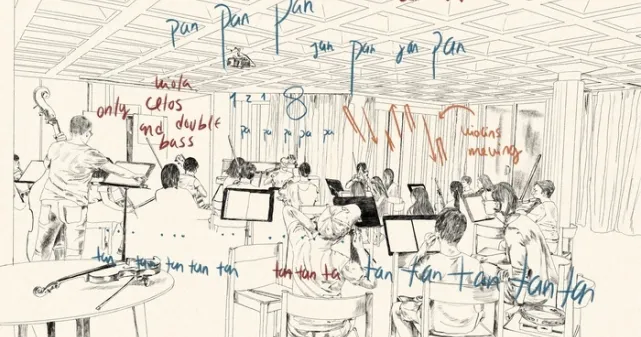 pan pan pan
pan pan
viola
only celos
and double
bass
1 2 1 8
pa pa pa pa pa
violins
moving
tan tan tan tan tan
tan tan ta
tan tan tan tan tan